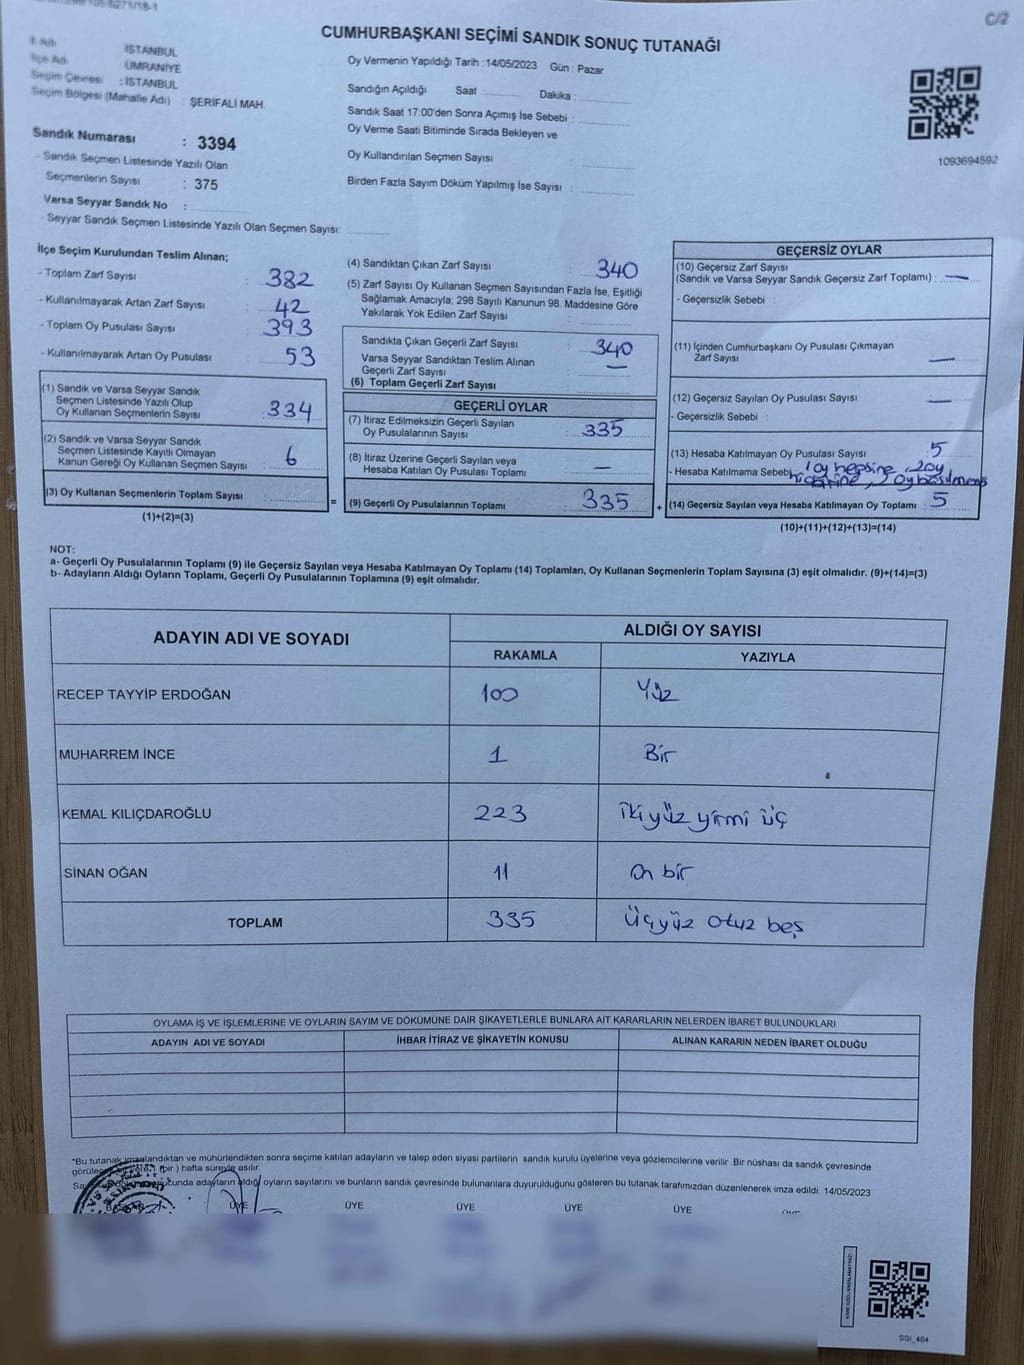 C/2
CUMHURBAŞKANI SEÇİMİ SANDIK SONUÇ TUTANAĞI
İl Adı İSTANBUL
İlçe Adı ÜMRANİYE
Seçim Çevresi : İSTANBUL
Seçim Bölgesi (Mahalle Adı) : ŞERİFALİ MAH.
Oy Vermenin Yapıldığı Tarih :14/05/2023 Gün : Pazar
Sandığın Açıldığı Saat : Dakika :
Sandık Saat 17:00'den Sonra Açılmış İse Sebebi :
Oy Verme Saati Bitiminde Sırada Bekleyen ve
Oy Kullandırılan Seçmen Sayısı :
Birden Fazla Sayım Döküm Yapılmış İse Sayısı :
1093694592
Sandık Numarası : 3394
- Sandık Seçmen Listesinde Yazılı Olan
Seçmenlerin Sayısı : 375
Varsa Seyyar Sandık No :
- Seyyar Sandık Seçmen Listesinde Yazılı Olan Seçmen Sayısı:
İlçe Seçim Kurulundan Teslim Alınan;
- Toplam Zarf Sayısı : 382
- Kullanılmayarak Artan Zarf Sayısı : 42
- Toplam Oy Pusulası Sayısı : 393
- Kullanılmayarak Artan Oy Pusulası : 53
(1) Sandık ve Varsa Seyyar Sandık
Seçmen Listesinde Yazılı Olup
Oy Kullanan Seçmenlerin Sayısı : 334
(2) Sandık ve Varsa Seyyar Sandık
Seçmen Listesinde Kayıtlı Olmayan
Kanun Gereği Oy Kullanan Seçmen Sayısı : 6
(3) Oy Kullanan Seçmenlerin Toplam Sayısı :
(1)+(2)=(3)
(4) Sandıktan Çıkan Zarf Sayısı : 340
(5) Zarf Sayısı Oy Kullanan Seçmen Sayısından Fazla İse, Eşitliği
Sağlamak Amacıyla; 298 Sayılı Kanunun 98. Maddesine Göre
Yakılarak Yok Edilen Zarf Sayısı :
Sandıkta Çıkan Geçerli Zarf Sayısı : 340
Varsa Seyyar Sandıktan Teslim Alınan
Geçerli Zarf Sayısı : —
(6) Toplam Geçerli Zarf Sayısı :
GEÇERLİ OYLAR
(7) İtiraz Edilmeksizin Geçerli Sayılan
Oy Pusulalarının Sayısı : 335
(8) İtiraz Üzerine Geçerli Sayılan veya
Hesaba Katılan Oy Pusulası Toplamı : —
= (9) Geçerli Oy Pusulalarının Toplamı : 335 +
GEÇERSİZ OYLAR
(10) Geçersiz Zarf Sayısı
(Sandık ve Varsa Seyyar Sandık Geçersiz Zarf Toplamı) : —
- Geçersizlik Sebebi :
(11) İçinden Cumhurbaşkanı Oy Pusulası Çıkmayan
Zarf Sayısı : —
(12) Geçersiz Sayılan Oy Pusulası Sayısı : —
- Geçersizlik Sebebi :
(13) Hesaba Katılmayan Oy Sayısı : 5
- Hesaba Katılmama Sebebi 1 oy hepsine, 2oy
hiçbirine, 2 oy basılmamış
(14) Geçersiz Sayılan veya Hesaba Katılmayan Oy Toplamı : 5
(10)+(11)+(12)+(13)=(14)
NOT:
a- Geçerli Oy Pusulalarının Toplamı (9) ile Geçersiz Sayılan veya Hesaba Katılmayan Oy Toplamı (14) Toplamları, Oy Kullanan Seçmenlerin Toplam Sayısına (3) eşit olmalıdır. (9)+(14)=(3)
b- Adayların Aldığı Oyların Toplamı, Geçerli Oy Pusulalarının Toplamına (9) eşit olmalıdır.
ADAYIN ADI VE SOYADI ALDIĞI OY SAYISI
RAKAMLA YAZIYLA
RECEP TAYYİP ERDOĞAN 100 Yüz
MUHARREM İNCE 1 Bir
KEMAL KILIÇDAROĞLU 223 İkiyüz yirmi üç
SİNAN OĞAN 11 On bir
TOPLAM 335 Üçyüz otuz beş
OYLAMA İŞ VE İŞLEMLERİNE VE OYLARIN SAYIM VE DÖKÜMÜNE DAİR ŞİKAYETLERLE BUNLARA AİT KARARLARIN NELERDEN İBARET BULUNDUKLARI
ADAYIN ADI VE SOYADI İHBAR İTİRAZ VE ŞİKAYETİN KONUSU ALINAN KARARIN NEDEN İBARET OLDUĞU
*Bu tutanak imzalandıktan ve mühürlendikten sonra seçime katılan adayların ve talep eden siyasi partilerin sandık kurulu üyelerine veya gözlemcilerine verilir. Bir nüshası da sandık çevresinde
(bir) hafta süreyle asılır.
adayların aldığı oyların sayılarını ve bunların sandık çevresinde bulunanlara duyurulduğunu gösteren bu tutanak tarafımızdan düzenlenerek imza edildi. 14/05/2023
BAŞKAN ÜYE ÜYE ÜYE ÜYE ÜYE
SSI_404